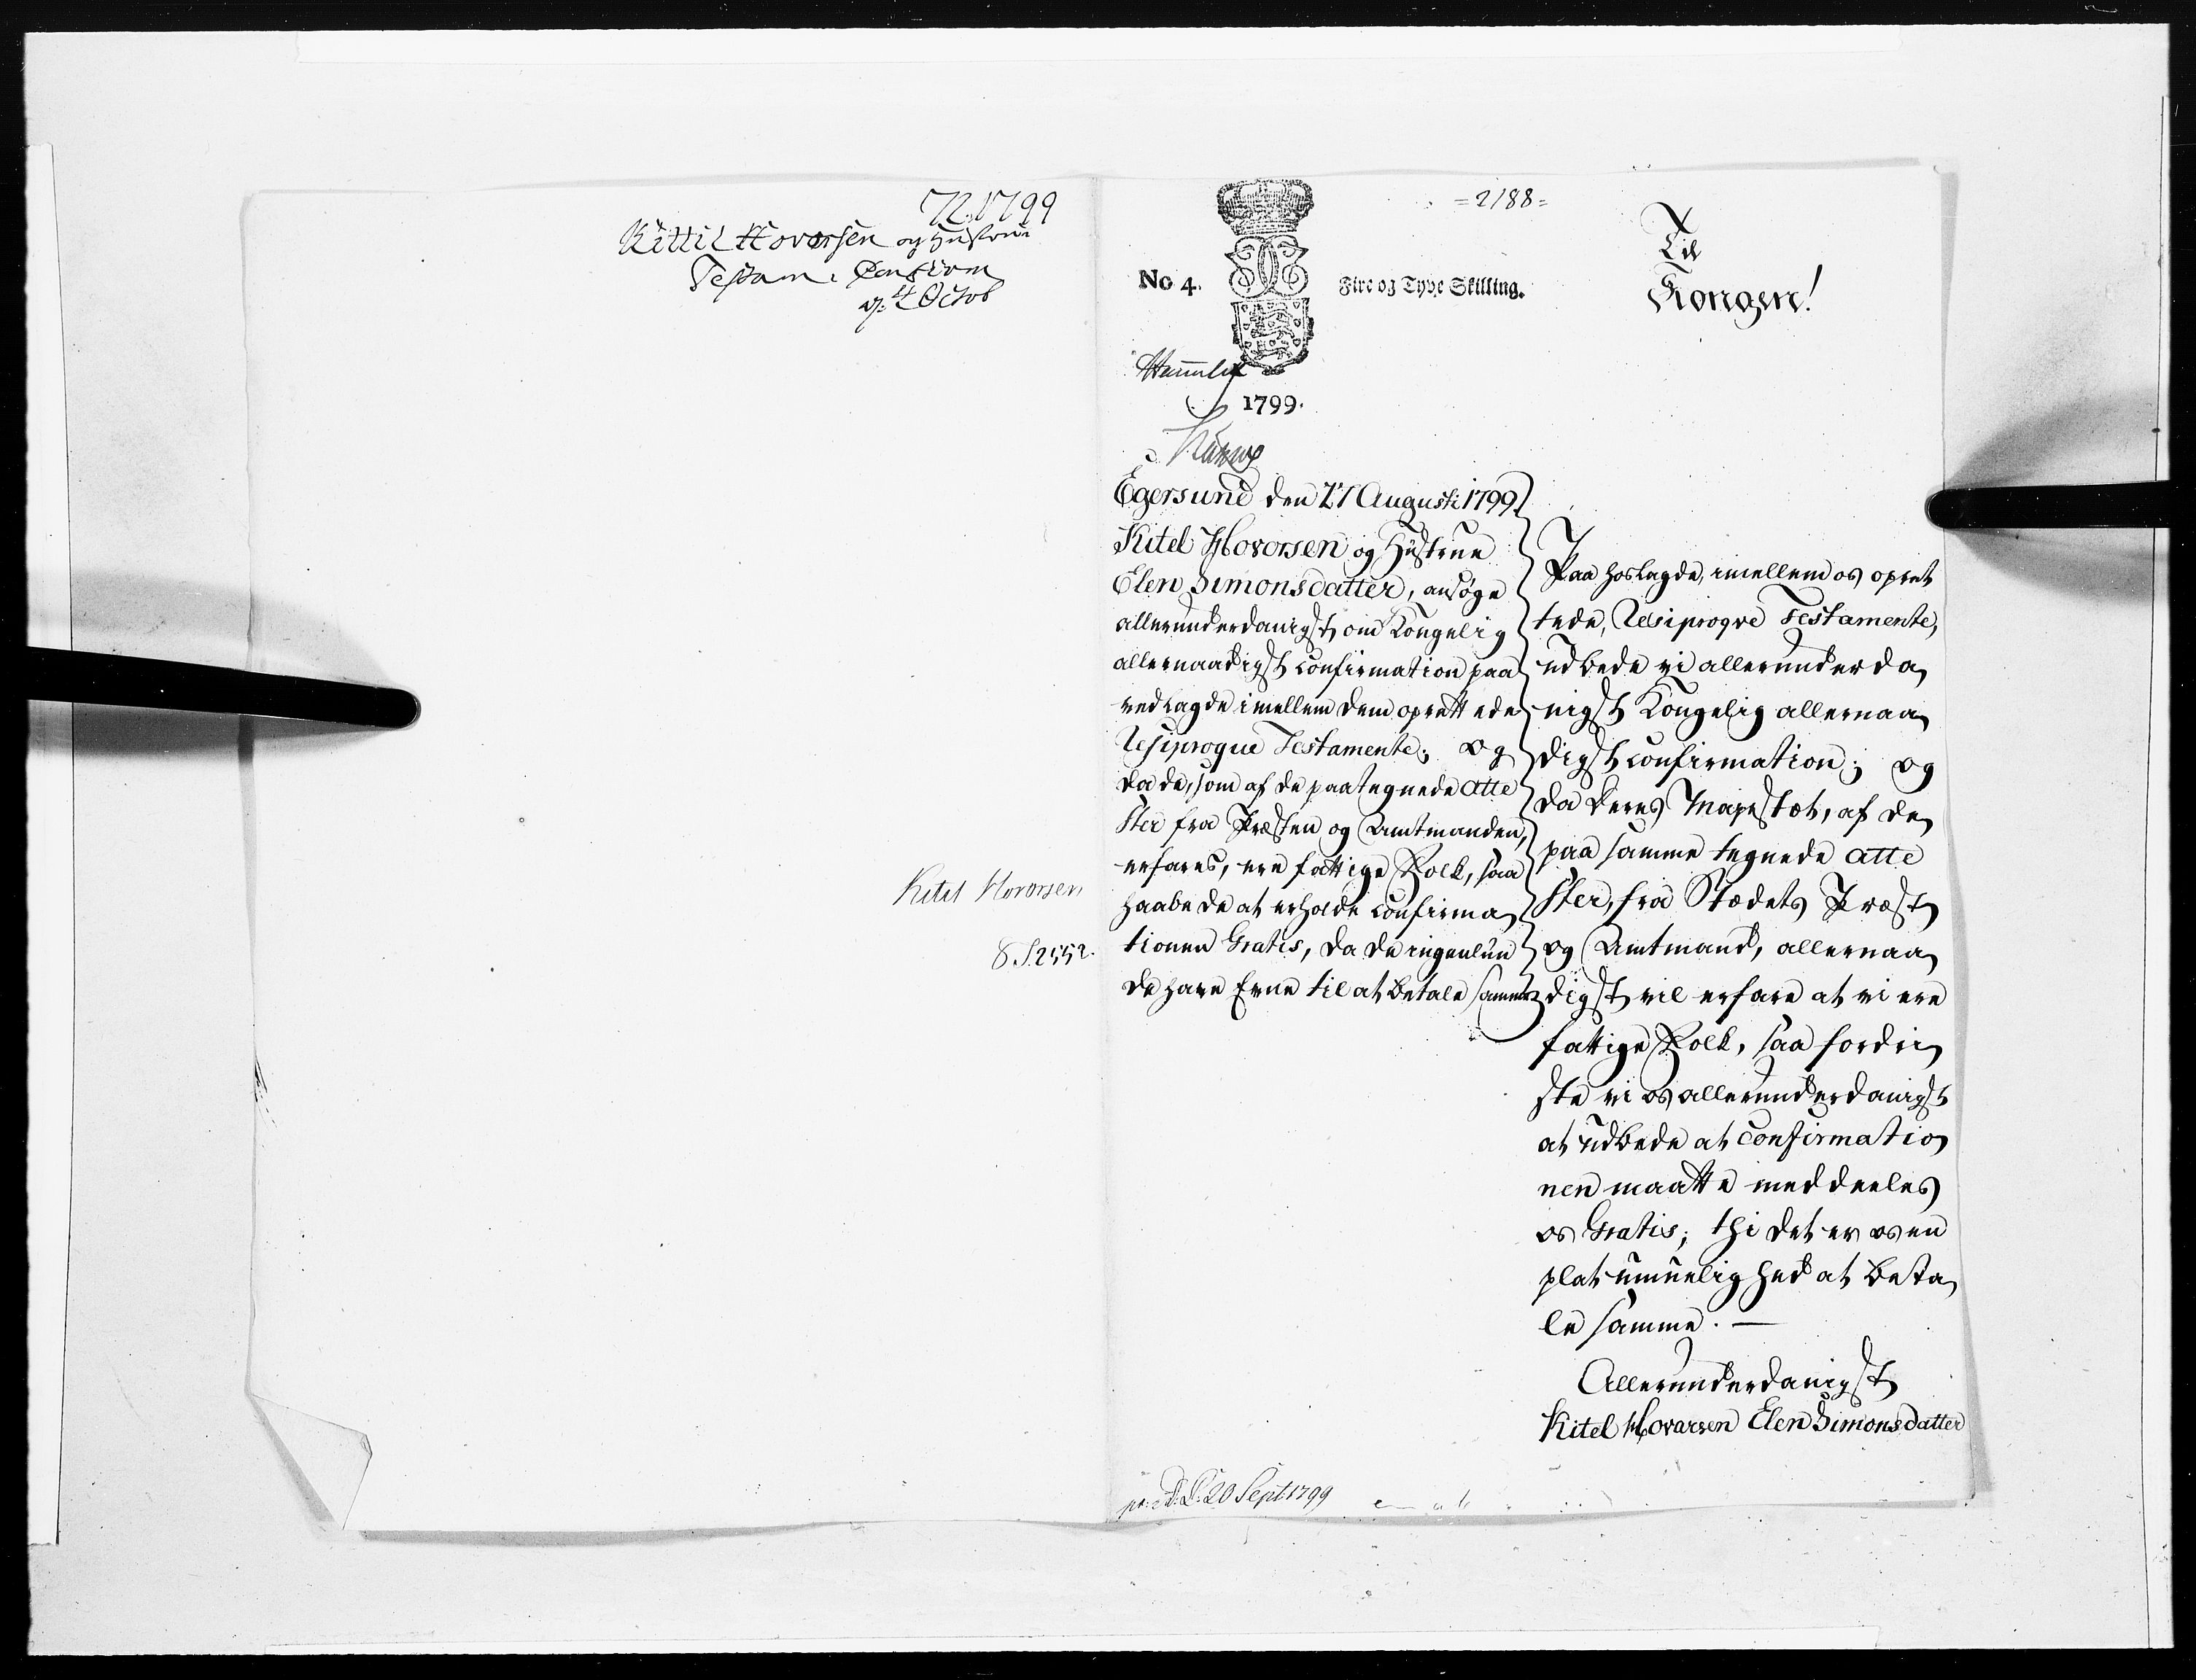 72. 1799
Kittil Hovorsen og Hustrue
Testam. Confirm
4 Octob
Kitel Hovorsen
8 S 2552.
=2188=
No 4.
Fire og Tyve Skilling.
1799.
Til
Kongen!
Egersund den 27 Augusti 1799
Kitel Hovorsen og Hustrue
Elen Simonsdatter, ansøge
allerunderdanigst om Kongelig
allernaadigst Confirmation paa
vedlagde imellem dem oprettede
Resiproque Testamente; og
da de, som af de paategnede Atte
ster fra Præsten og Amtmanden,
erfares, ere fattige Folk, saa
haabe de at erholde Confirma
tionen Gratis, da de ingenlun
de have Evne til at betale samme
Paa hoslagde, imellem os opret
tede, Resiproqve Testamente,
udbede vi allerunderda
nigst Kongelig allernaa
digst Confirmation; og
da Deres Majestæt, af de
paa samme tegnede Atte
ster, fra Stædets Præst
og Amtmand, allernaa
digst vil erfare at vi ere
fattige Folk, saa fordri
ste vi os allerunderdanigst
at udbede at Confirmatio
nen maatte meddeeles
os Gratis; thi det er os en
plat umuelighed at beta
le samme. —
Allerunderdanigst
Kitel Hovarsen Elen Simonsdatter
pr: D: L: 20 Sept 1799